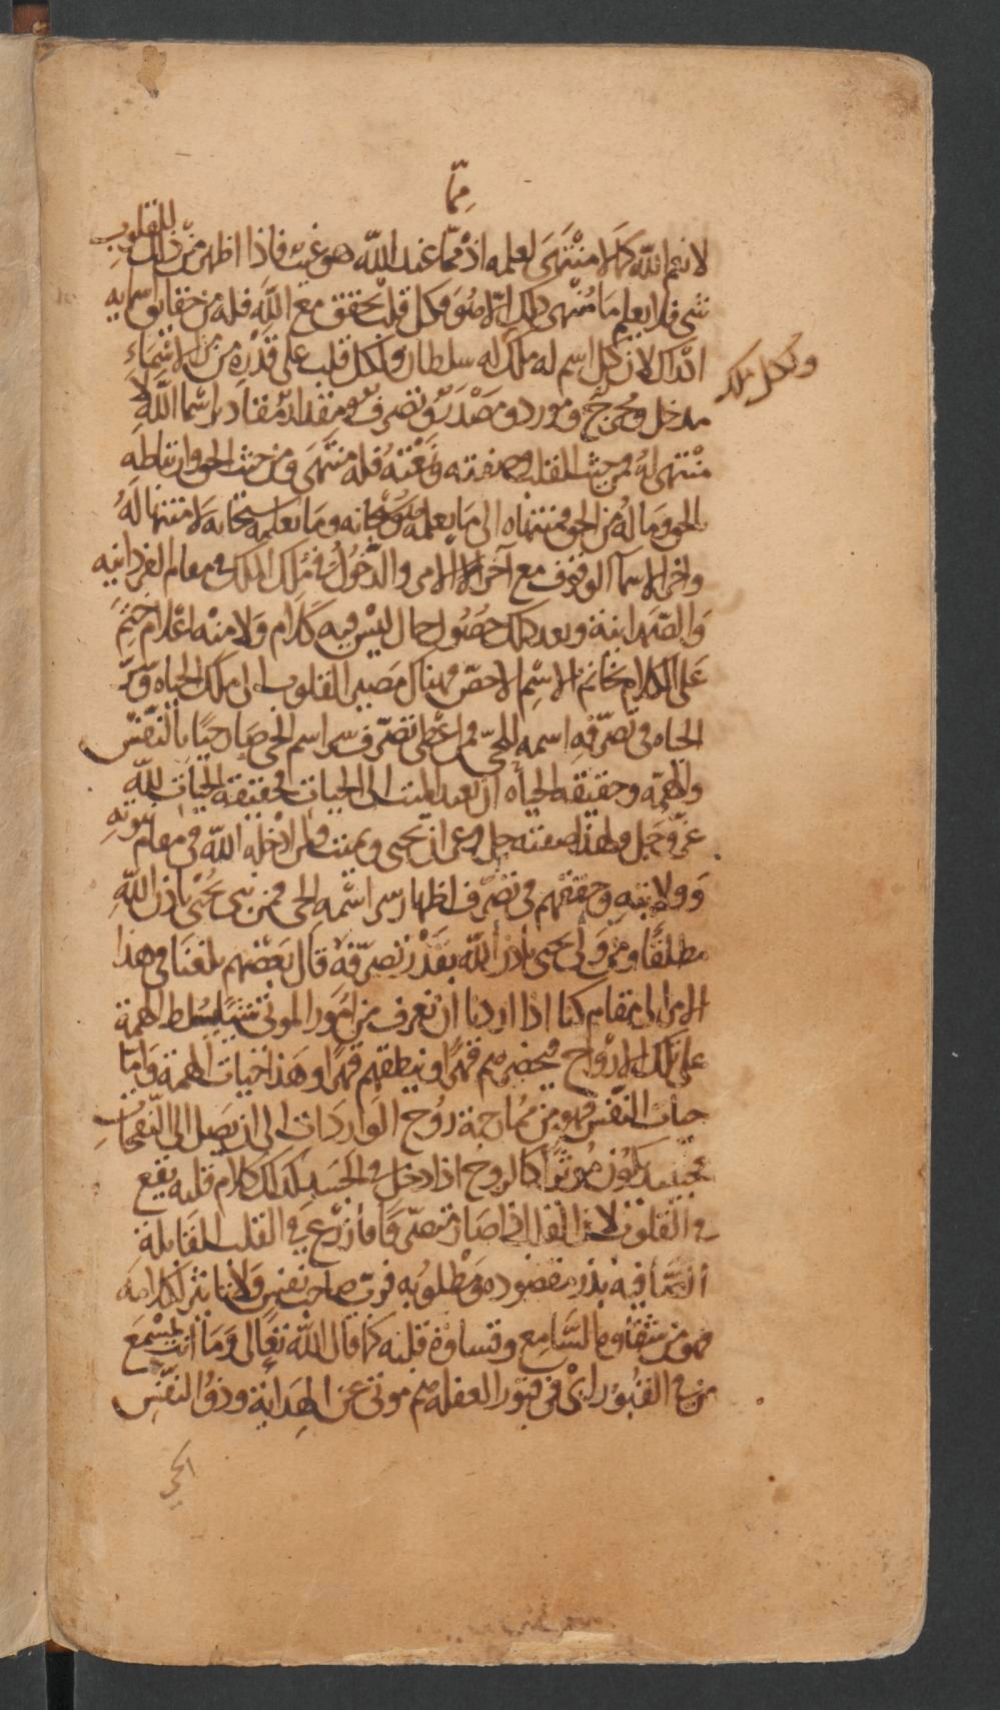 مما
للقلوب
لاسم الله كما لا منتهى لعلمه اذ مما عند الله هو غيب فاذا اظهر من ذلك
شى فلا يعلم ما منتهى ذلك الا هو وكل قلب تحقق مع الله فله من حقايق اسمايه
ولكل ملك
الذاك لان كل اسم له ملك له سلطان ولكل قلب على قدره من الاسماء
مدخل ومخرج ومورد ومصدر وتصرف ومقدار مقادير اسما الله لا
منتهى له من حيث القلب وصفته ونعته فله منتهى ومن حيث الحق وارتباطه
بالحق وما له من الحق فمنتهاه الى ما يعلمه سبحانه وما يعلمه سبحانه لا منتها له
واخر الاسما الوقوف مع آخر الامر والدخول فى ملك الملك فى مقام الفردانيه
والصمدانية وبعد ذلك حصول حال ليس فيه كلام ولا منه اعلام ختم
على الكلام بخاتم الاسم الاخص فهناك مصير القلوب الى ملك الحياه وسر
الحياه فى تصرفه اسمه المحي فمن اعطى تصرف سر اسم الحى صار حيا بالنفس
والهمة وحقيقة الحياه ان تعيد الميت الى الحيات فحقيقة الحيات لله
عز وجل وهذه صفته جل وعز ان يحيى ويميت فمن ادخله الله فى مقام نبوته
وولايته وحققهم فى تصرف اظهار سر اسمه الحى فمن نبى يحى باذن الله
مطلقا ومن ولى يحيى باذن الله بقدر تصرفه قال بعضهم بلغنا فى هذا
الامر الى مقام كنا اذا اردنا ان نعرف من امور الموتى شيا نسلط الهمة
على تلك الارواح فيحضرهم قهرا وينطقهم قهرا وهذا حيات الهمة واما
حيات النفس فهو من ممازجة روح الواردات الى ان يصل الى النفحات
فحينيذ يكون موثرا كالروح اذا دخل فى الجسد كذلك كلام قلبه يقع
فى القلوب لان القا الذى صار متصى فاما زرع فى القلب المقابلة
السما فيه بذر مقصوده ومطلوبه فرب صاحب نفس ولا تاثير لكلامه
فهو من شقاوة السامع وقساوة قلبه كما قال الله تعالى وما انت بمسمع
من فى القبور اى فى قبور الغفله هم موتى عن الهداية وذو النفس
الحى